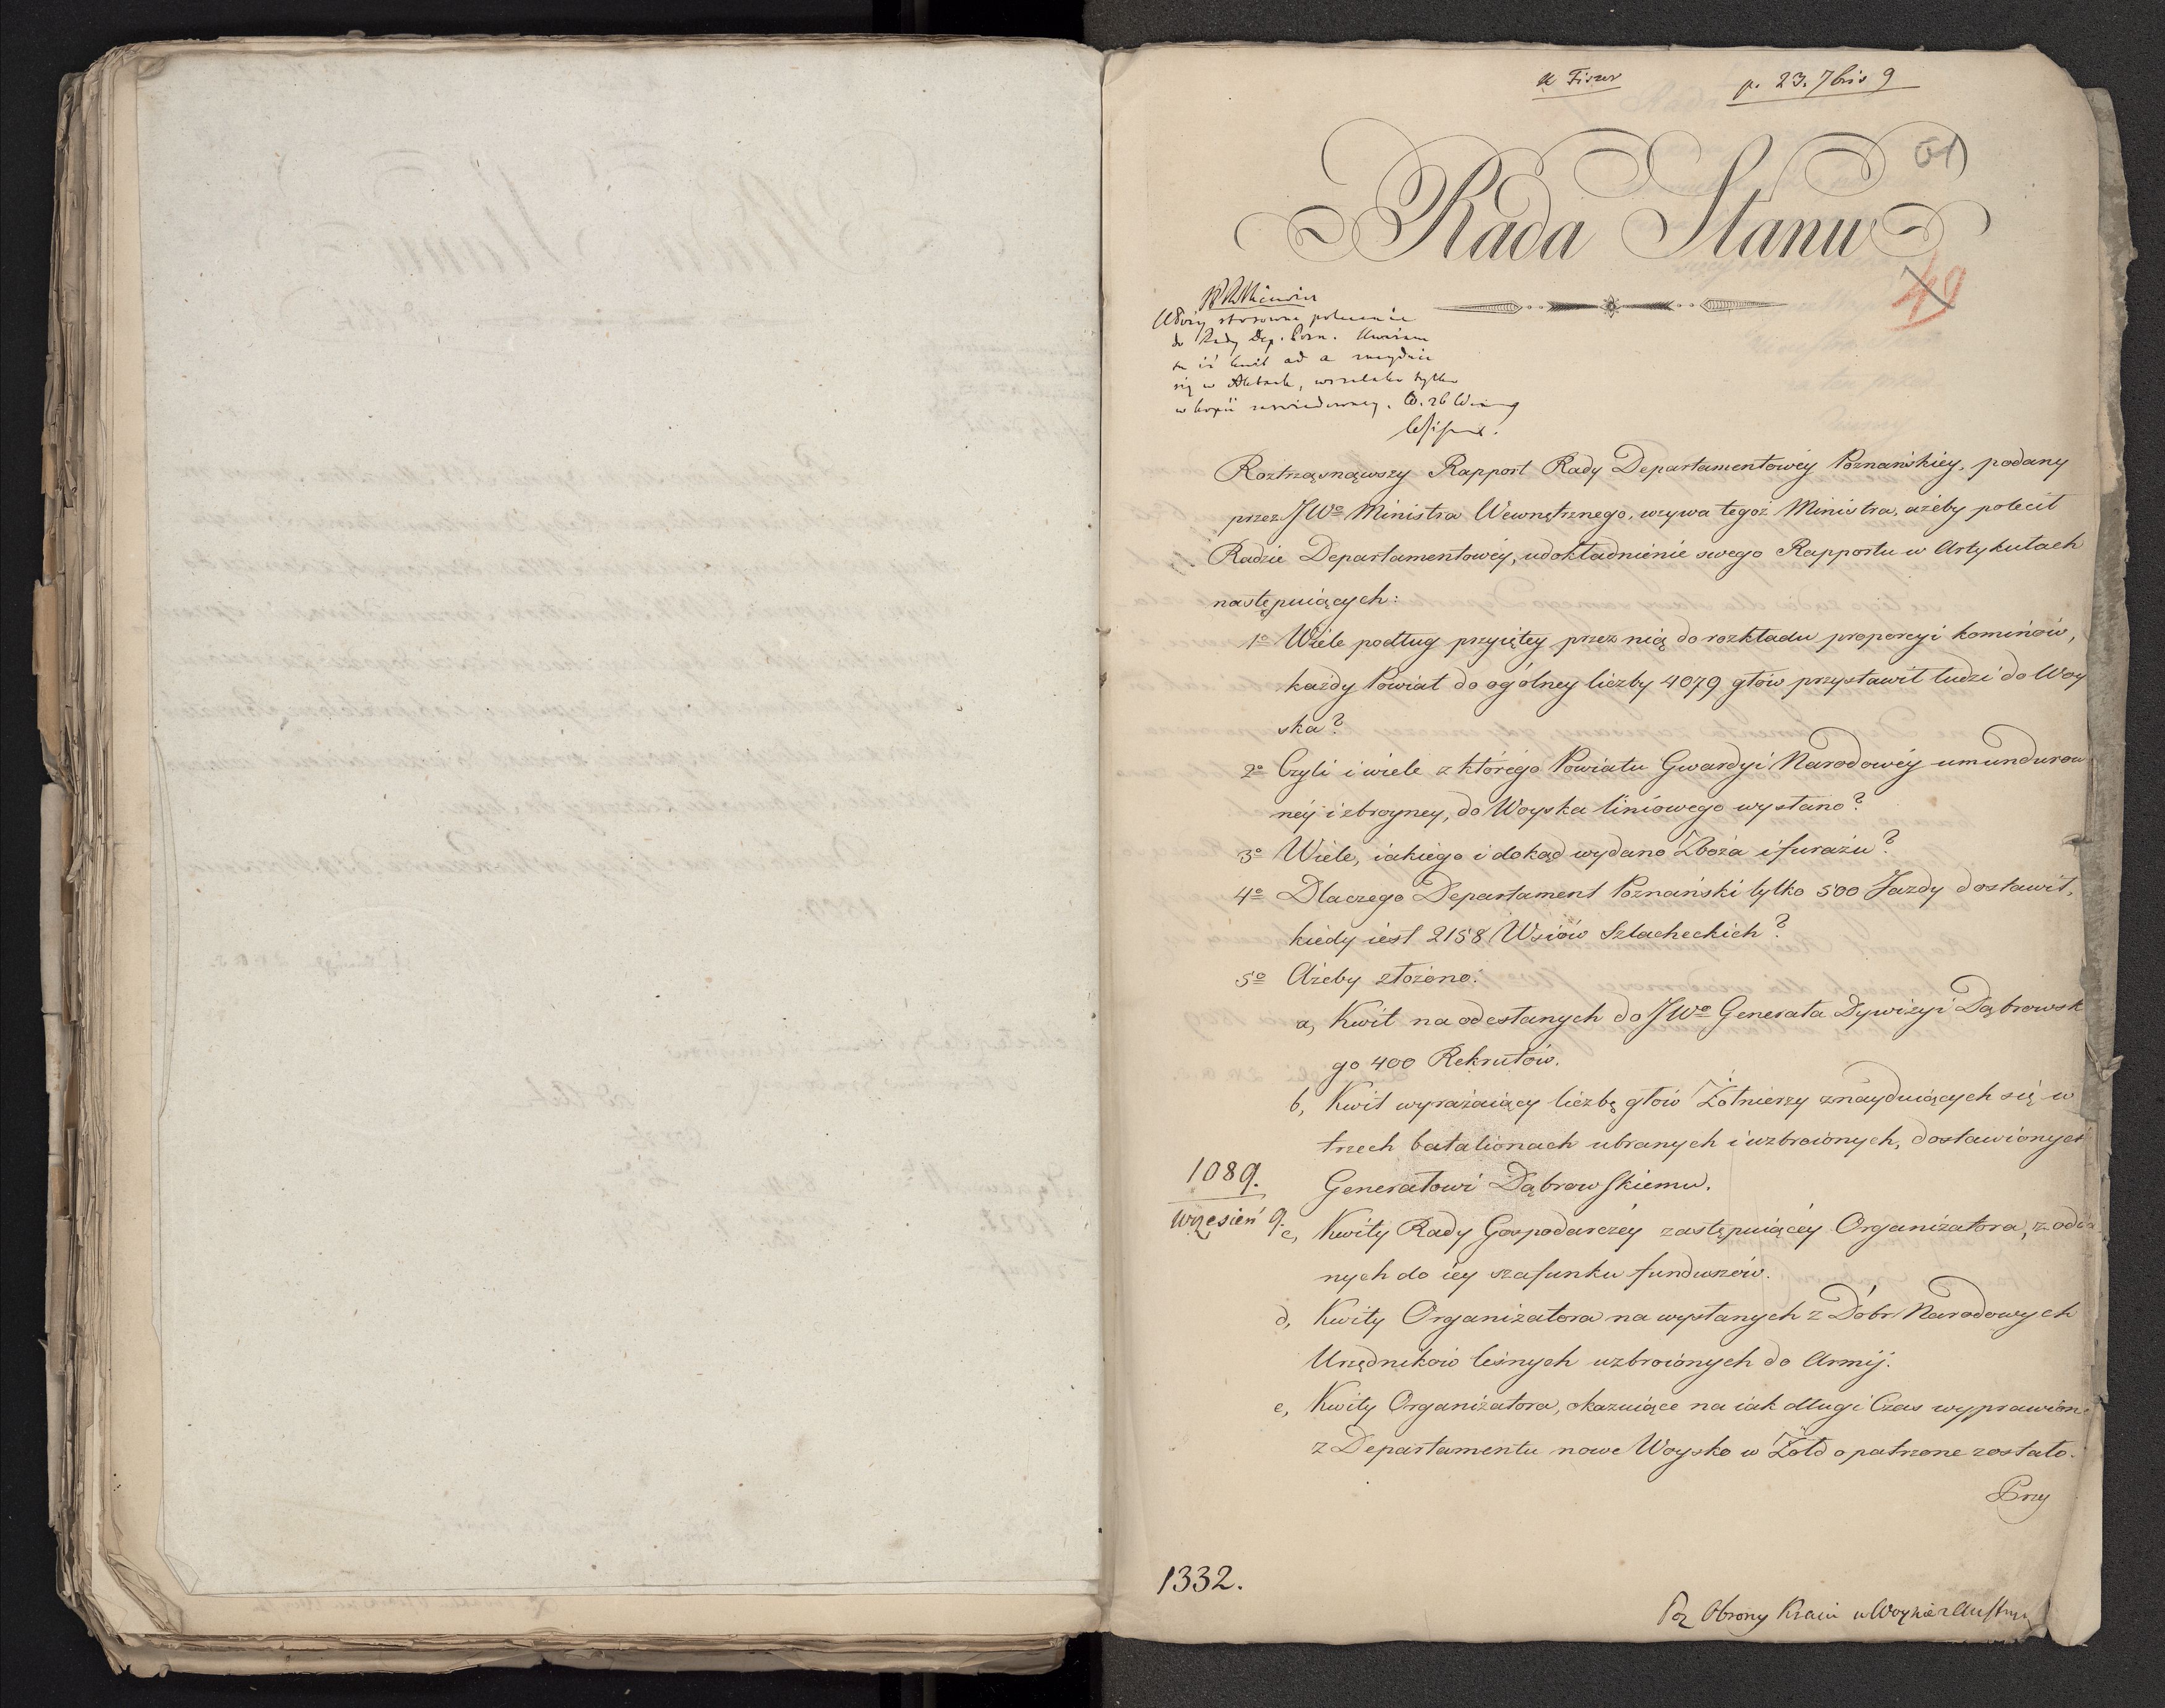 p. 23. 7bris 9
51
Rada Stanu
49
Ułoży stosowne polecenie
do Rady Dep. Pozn.
iż kwit ad a znayduie
się w Aktach, wszelako tylko
w kopii
Roztrząsnąwszy Rapport Rady Departamentowéy Poznańskiéy, podany
przez JWo Ministra Wewnętrznego, wzywa tegoż Ministra, ażeby polecił
Radzie Departamentowéy, udokładnienie swego Rapportu w Artykułach
następuiących:
1o Wiele podług przyiętey przez nią do rozkładu proporcyi kominów,
każdy Powiat do ogólney liczby 4079 głów przystawił ludzi do Woy
ska?
2o Czyli i wiele z którégo Powiatu Gwardyi Narodowéy umundurow
néy i zbroyney, do Woyska liniowego wysłano?
3o Wiele, iakiego i dokąd wydano Zboża i furażu?
4o Dlaczego Departament Poznański tylko 500 Jazdy dostawił,
kiedy iest 2158 Wsiów Szlacheckich?
5o Ażeby złożono:
a, Kwit na odesłanych do JWo Generała Dywizyi Dąbrowsk
go 400 Rekrutów.
b, Kwit wyrażaiący liczbę głów Żołnierzy znayduiących się w
trzech batalionach ubranych i uzbroionych, dostawionych
Generałowi Dąbrowskiemu.
1089.
Wrzesień 9.
c, Kwity Rady Gospodarczéy zastępuiącéy Organizatora, z odda
nych do iéy szafunku funduszów.
d, Kwity Organizatora na wysłanych z Dóbr Narodowych
Urzędników leśnych uzbroionych do Armij.
e, Kwity Organizatora, okazuiące na iak długi Czas wyprawione
z Departamentu nowe Woysko w Żołd opatrzone zostało.
Przy
1332.
Obrony Kraiu w Woynie z Austryą